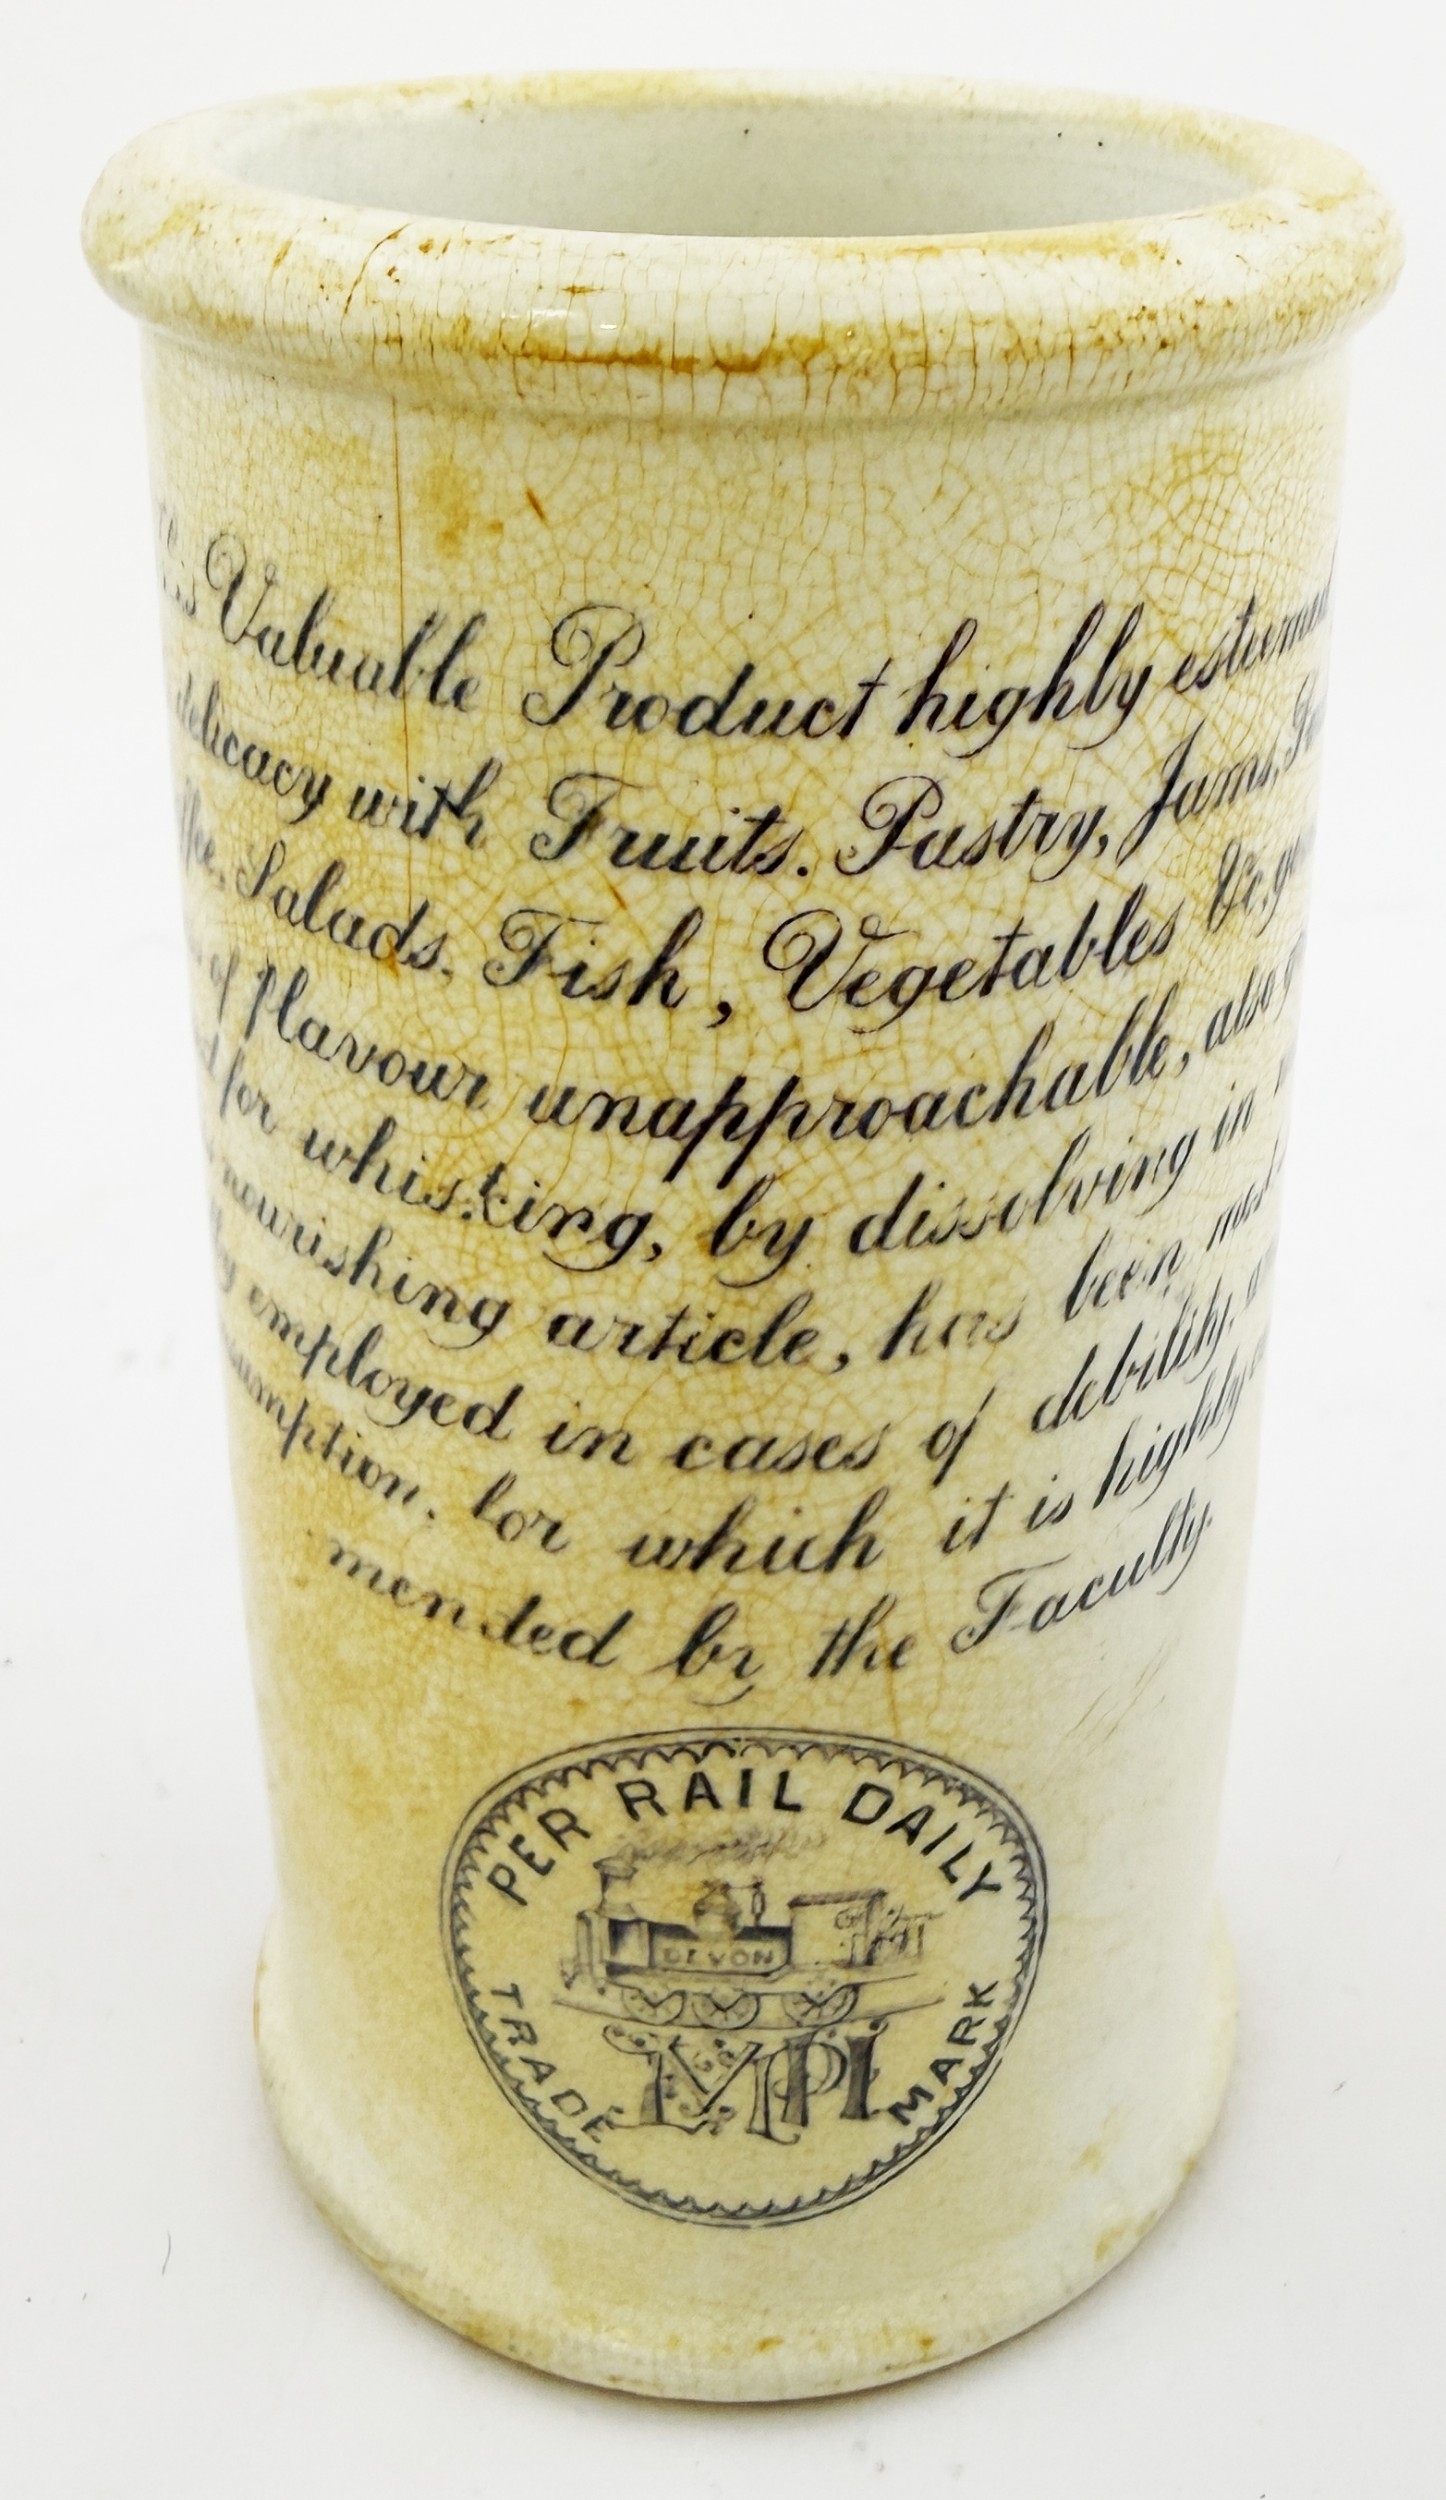 Valuable Product highly esteemed
delicacy with Fruits. Pastry, Jams,
Salads. Fish, Vegetables &c,
of flavour unapproachable, also
for whisking, by dissolving in
nourishing article, has been most
employed in cases of debility,
for which it is highly
mended by the Faculty.
PER RAIL DAILY
DEVON
TRADE MARK